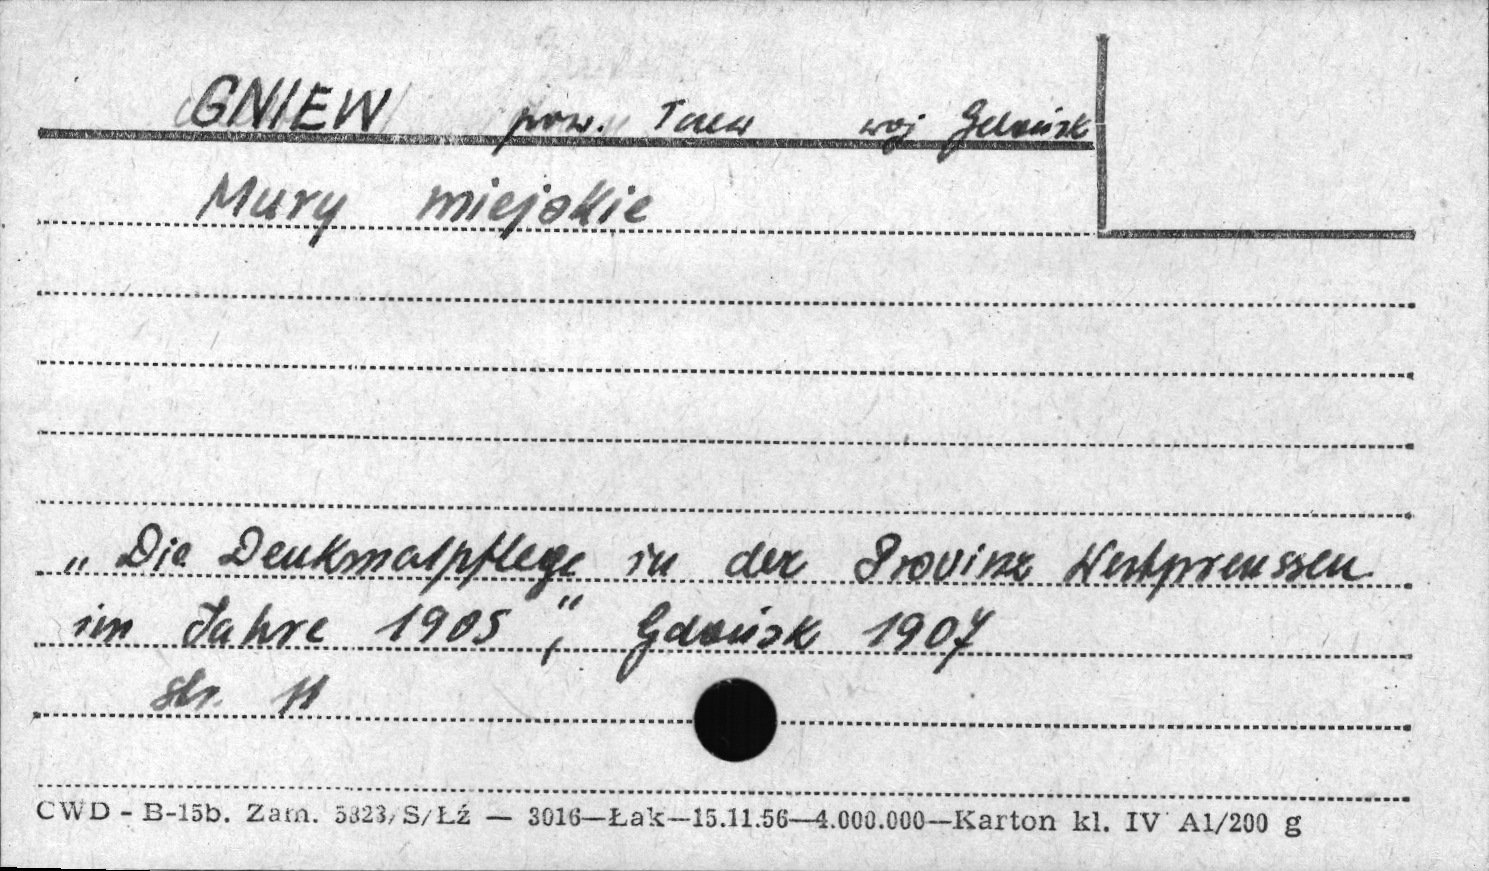 GNIEW pow. Tczew woj Gdańsk
Mury miejskie
„Die Denkmalpflege in der Provinz Westpreussen
im Jahre 1905", Gdańsk 1907
str. 11
CWD - B-15b. Zam. 5323/S/Łź — 3016—Łak—15.11.56—4.000.000—Karton kl. IV A1/200 g